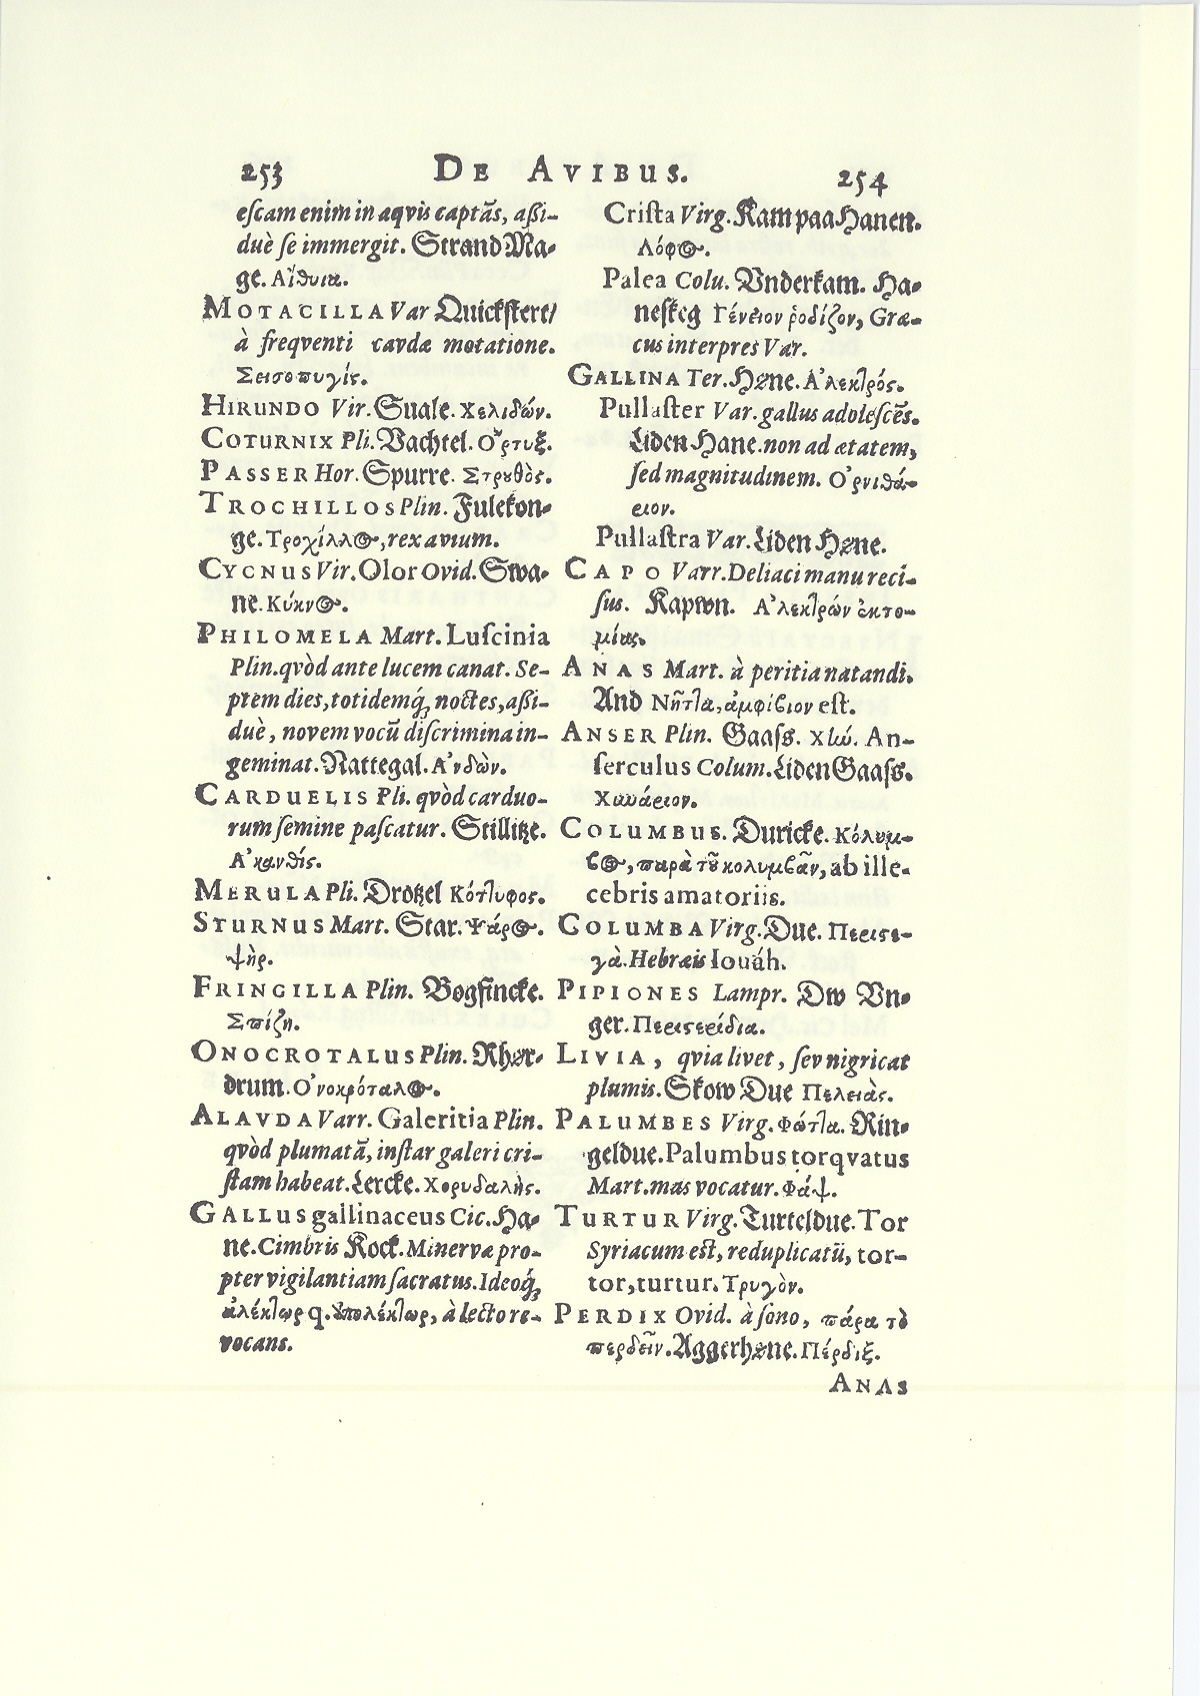 253 DE AVIBUS. 254
eſcam enim in aqvis captãs, aßi-
duè ſe immergit. Strand Ma-
ge. Αἴθυια.
MOTACILLA Var Quickſtert/
à freqventi cavdæ motatione.
Σεισοπυγίς.
HIRUNDO Vir. Suale. χελιδών.
COTURNIX Pli. Vachtel. Ὄρτυξ.
PASSER Hor. Spurre. Στρȣθὸς.
TROCHILLOS Plin. Fulekon-
ge. Τροχίλλος, rex avium.
CYCNUS Vir. Olor Ovid. Swa-
ne. Κύκνος.
PHILOMELA Mart. Luſcinia
Plin. qvòd ante lucem canat. Se-
ptem dies, totidemq́; noctes, aßi-
duè, novem vocũ diſcrimina in-
geminat. Nattegal. Ἀνδὼν.
CARDUELIS Pli. qvòd carduo-
rum ſemine paſcatur. Stillitze.
Ἀκανθίς.
MERULA Pli. Droſzel Κότ]υφος.
STURNUS Mart. Star. Ψάρος.
ψὴρ.
FRINGILLA Plin. Bogfincke.
Σπίζη.
ONOCROTALUS Plin. Rhør-
drum. Ὀνοκρόταλος.
ALAVDA Varr. Galeritia Plin.
qvòd plumatã, inſtar galeri cri-
ſtam habeat. Lercke. Χορυδαλὴς.
GALLUS gallinaceus Cic. Ha-
ne. Cimbris Kock. Minervæ pro-
pter vigilantiam ſacratus. Ideoq́;
ἀλέκτωρ q. ὑπολέκτωρ, à lecto re-
vocans.
Criſta Virg. Kam paa Hanen.
Λόφος.
Palea Colu. Vnderkam. Ha-
neſkeg Γένειον ῥοδίζον, Græ-
cus interpres Var.
GALLINA Ter. Høne. Ἀλεκτρός.
Pullaſter Var. gallus adoleſcẽs.
Liden Hane. non ad ætatem,
ſed magnitudinem. Ὀρνιθά-
ειον.
Pullaſtra Var. Liden Høne.
CAPO Varr. Deliaci manu reci-
ſus. Kapwn. Ἀλεκτρών ἐκτο-
μίας.
ANAS Mart. à peritia natandi.
And Νῆτ]α, ἀμφίβιον eſt.
ANSER Plin. Gaaſs. χὴν. An-
ſerculus Colum. Liden Gaaſs.
Χηνάειον.
COLUMBUS. Duricke. Κόλυμ-
βος, παρὰ τȣ̃ κολυμβᾶν, ab ille-
cebris amatoriis.
COLUMBA Virg. Due. Περιστε-
γὰ. Hebræis Iouáh.
PIPIONES Lampr. Dw Vn-
ger. Περιστερίδια.
LIVIA, qvia livet, ſev nigricat
plumis. Skow Due Πελειὰς.
PALUMBES Virg. Φώτ]α. Rin-
geldue. Palumbus torqvatus
Mart. mas vocatur. Φάψ.
TURTUR Virg. Turteldue. Tor
Syriacum eſt, reduplicatũ, tor-
tor, turtur. Τρυγὼν.
PERDIX Ovid. à ſono, πάρα τὸ
περδεῖν. Aggerhøne. Πέρδιξ.
ANAS